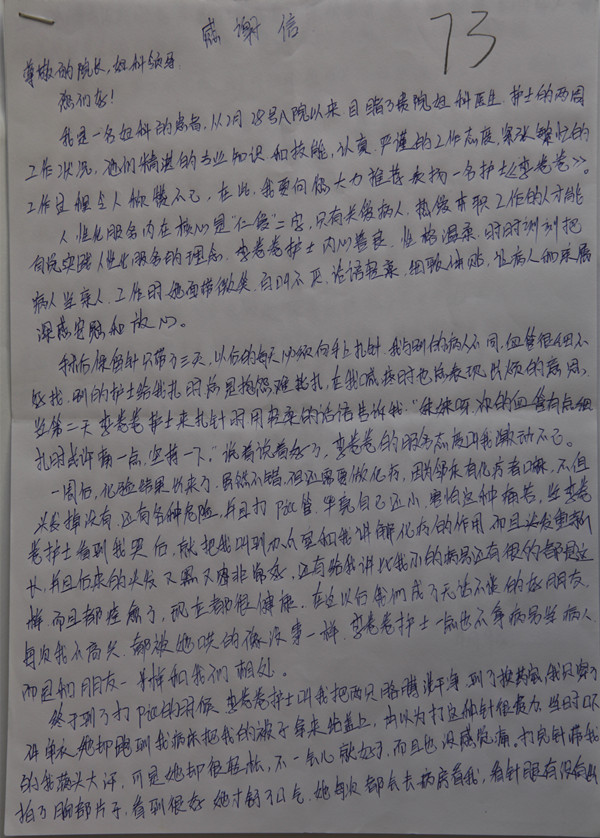 感谢信
73
尊敬的院长,妇科领导
您们好!
我是一名妇科的患者,从2月28号入院以来目睹了贵院妇科医生、护士的两周
工作状况,他们精湛的专业知识和技能,认真、严谨的工作态度,紧张繁忙的
工作过程令人钦佩不已,在此,我要向您大力推荐表扬一名护士《李卷卷》。
人性化服务内在核心是“仁爱”二字,只有关爱病人,热爱本职工作的人才能
自觉实践人性化服务的理念,李卷卷护士内心善良,性格温柔,时时刻刻把
病人当亲人,工作时她面带微笑,百问不厌,话语轻柔,细致体贴,让病人和家属
深感安慰和放心。
手术后保留针只带了三天,以后的每天必须向手上扎针,我与别的病人不同,血管很细不
好找,别的护士给我扎时总是抱怨难扎,在我喊疼时也总表现出烦的意思,
当第二天李卷卷护士来扎针时用轻柔的话语告诉我:“妹妹呀,你的血管有点细
扎时或许痛一点,坚持一下。”说着说着好了,李卷卷的服务态度叫我激动不已。
一周后,化验结果出来了,虽然不错,但还需要做化疗,因为听说化疗有口麻,不但
头发掉没有,还有各种危险,并且打Picc管,毕竟自己还小,害怕这种痛苦,当李卷
卷护士看到我哭后,就把我叫到办公室和我讲解化疗的作用,而且头发重新
长,并且后来的头发又黑又
病
而且都痊愈了,现在都很健康,在这以后我们成了无话不谈的好朋友,
每次我不高兴,都被她哄的像没事一样,李卷卷护士一点也不拿病号当病人
而且和朋友一样和我们相处。
终于到了打Picc的时候,李卷卷护士叫我把两只胳膊洗干净,到了换药室,我只穿了
件单衣,她却跑到我病床把我的被子拿来给盖上,
的我满头大汗,可是她却很轻松,不一会儿就好了,而且也没感觉痛。打完针带我
拍了胸部片子,看到很好她才舒了口气,她每次都会去病房看我,看针眼有没有出